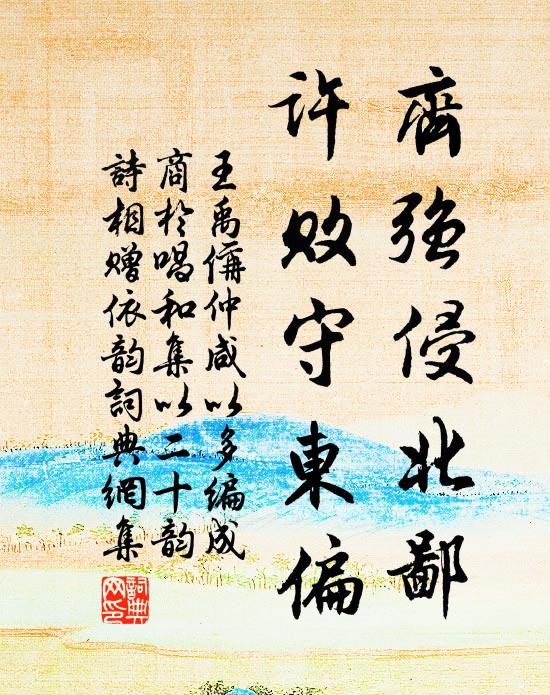 齊強侵北鄙
許敗守東偏
王禹偁仲咸以多編成
商於唱和集以二十韵
詩相贈依韵詞典網集